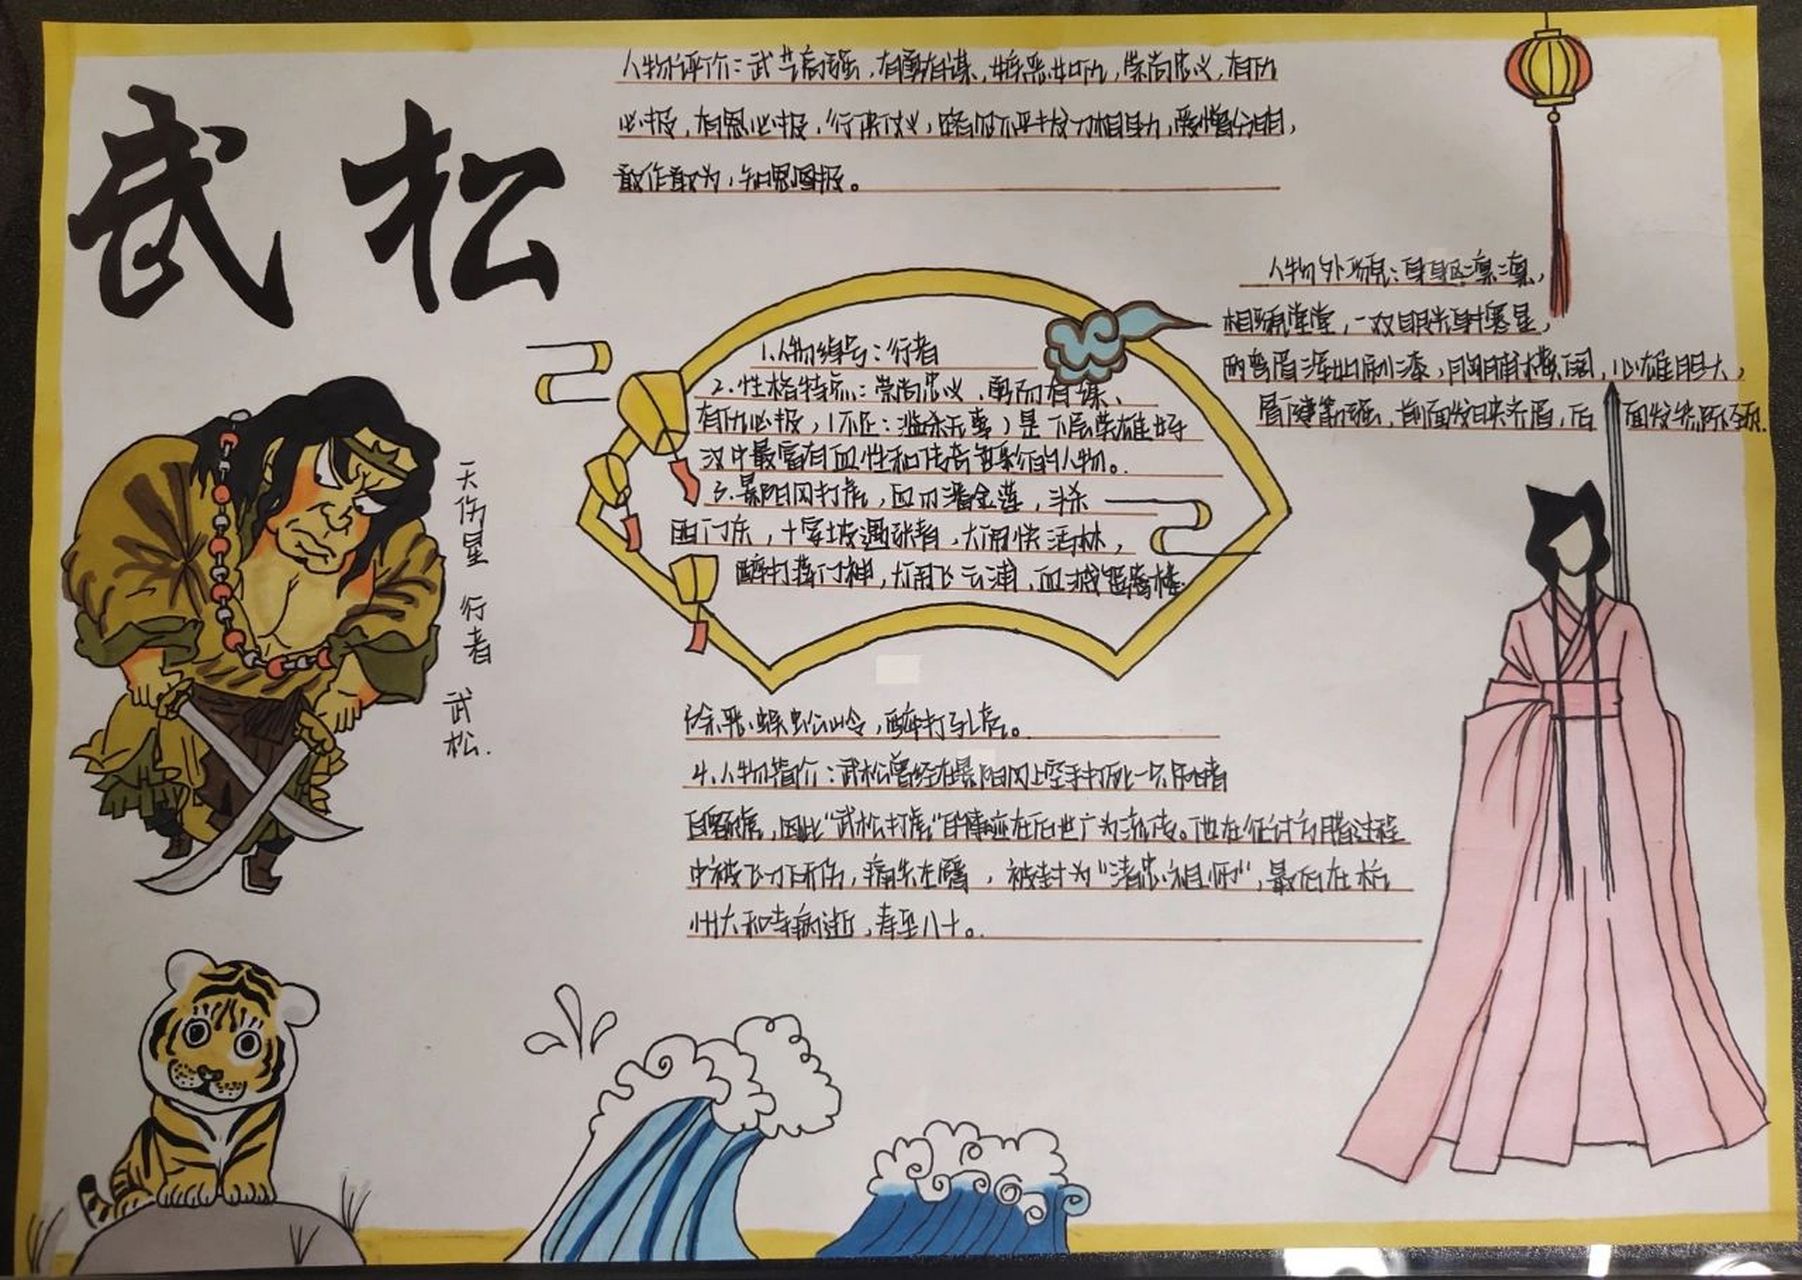 武松
人物评价：武艺高强，有勇有谋，嫉恶如仇，崇尚忠义，有仇
必报，有恩必报，行侠仗义，路见不平拔刀相助，爱憎分明，
敢作敢为，知恩图报。
人物外貌：身躯凛凛，
相貌堂堂，一双眼光射寒星，
两弯眉浑如刷漆，胸脯横阔，心雄胆大，
筋强，前面发映齐眉，后面发绕际颈。
1.人物绰号：行者
2.性格特点：崇尚忠义，勇而有谋、
有仇必报，（不足：滥杀无辜）是下层英雄好
汉中最富有血性和传奇色彩的人物。
3.景阳冈打虎，血刃潘金莲，斗杀
西门庆，十字坡遇张青，大闹快活林，
醉打蒋门神，大闹飞云浦，血溅鸳鸯楼
除恶蜈蚣岭，醉打孔亮。
4.人物简介：武松曾经在景阳冈上空手打死一只吊睛
白额虎，因此“武松打虎”的事迹在后世广为流传。他在征讨方腊过程
中被飞刀所伤，痛失左臂，被封为“清忠祖师”，最后在杭
州六和寺病逝，寿至八十。
天伤星 行者 武松.